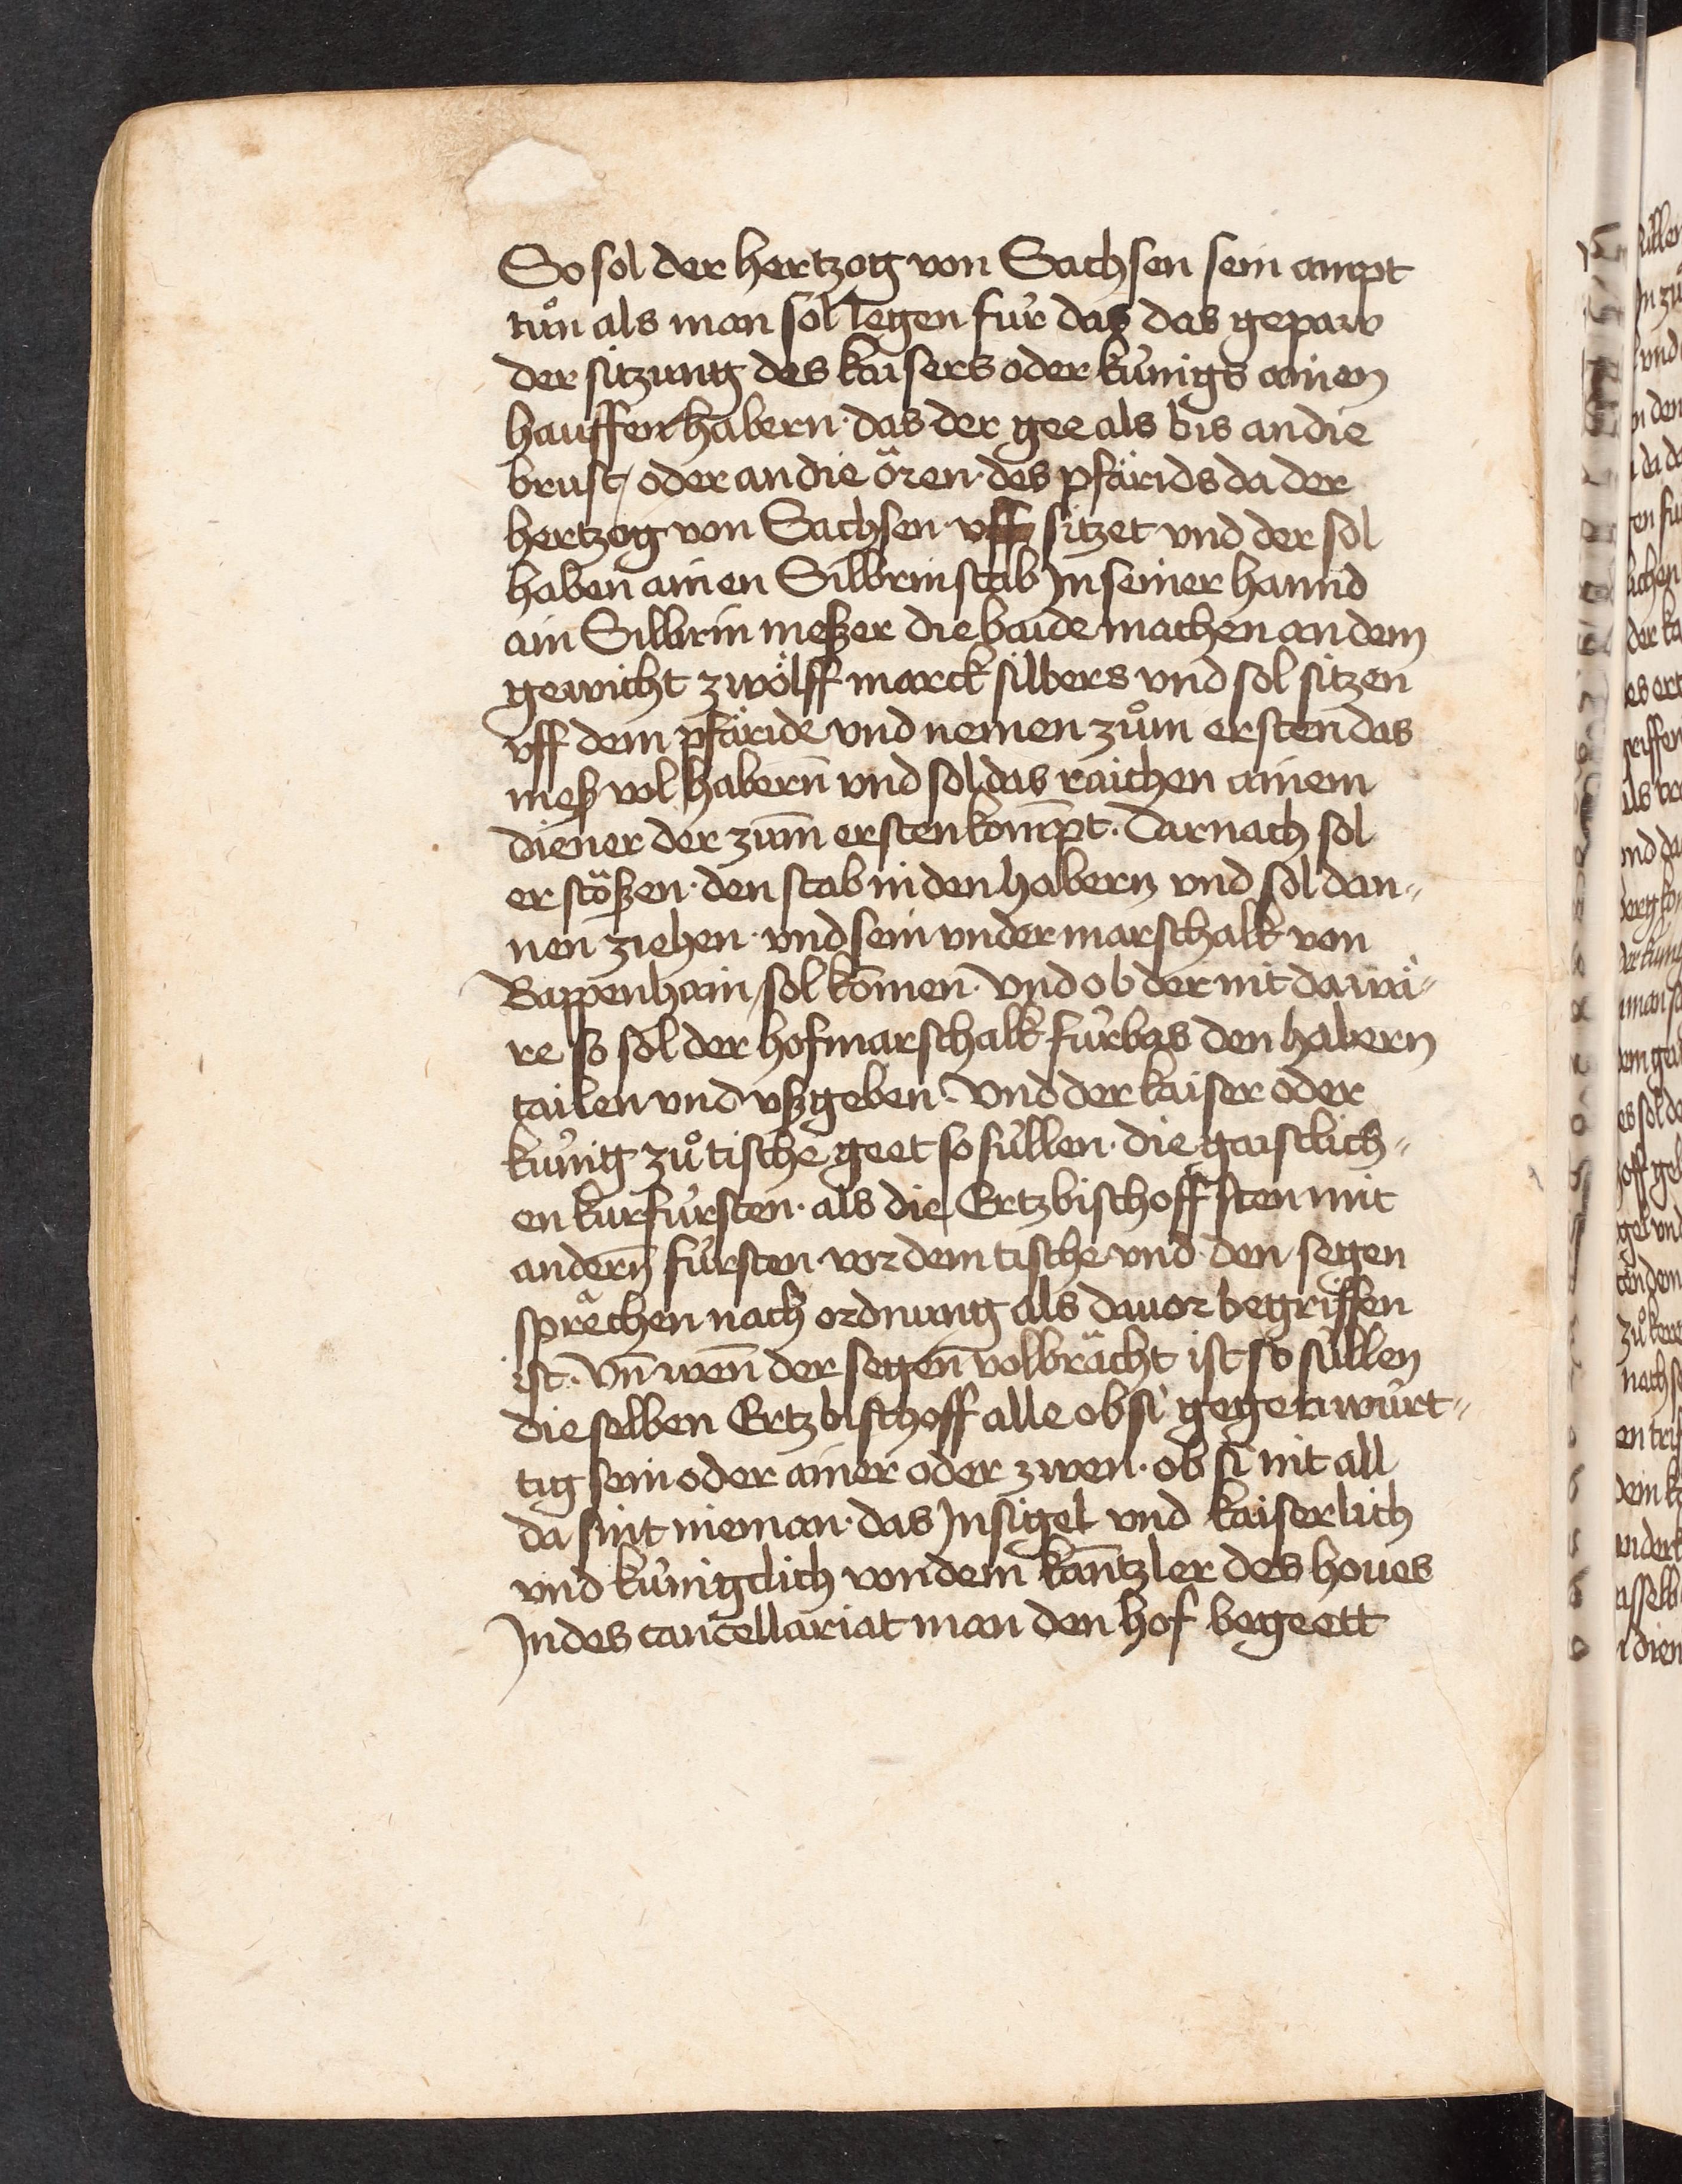 So sol der hertzog von Sachsen sein ampt
tuͦn als man sol legen für das das gepaw
der sitzung des kaisers oder künigs ainen
hauffen habern · das der gee als bis an die
brust / oder an die ören · des pfärids da der
hertzog von Sachsen · vff sitzet vnd der sol
haben ainen Silbrin stab In seiner hannd
ain Silbrin meßer die baide machen an dem
gewicht zwölff marck silbers vnd sol sitzen
vff dem pfäride vnd nemen zuͦm ersten das
meß vol habern̄ vnd sol das raichen ainem
diener der zum̄ ersten kom̄pt · Darnach sol
er stößen · den stab in den habern vnd sol dan„
nen ziehen · vnd sein vndermarschalk von
Bappenhaim / sol kom̄en · Vnd ob der nit da wä„
re so sol der hofmarschalk fürbas den habern
tailen vnd vßgeben · Vnd der kaiser oder
künig zuͦ tische geet so süllen · die gaistlich„
en kurfürsten · als die Ertzbischoff sten mit
andern̄ fürsten vor dem tische vnd den segen
sprëchen nach ordnung als dauor begriffen
ist · Vn̄ wen̄ der segen̄ volbrächt ist so süllen
die selben Ertzbischoff alle ob si gegenwürt„
tig sein oder ainer oder zwen · ob si nit all
da sint nieman · das Insigel vnd kaiserlich
vnd künigclich von dem kan̄tzler des houes
In des cancellariat man den hof begeett